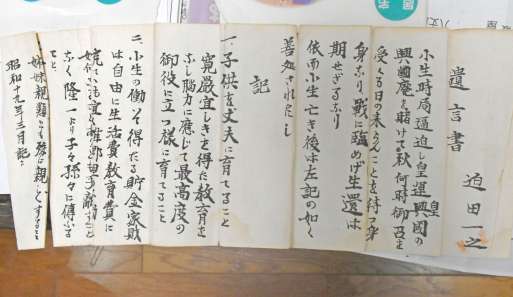 遺言書
迫田一之
小生時局逼迫し皇運興國の
興國廃を賭ける秋何時御召を
受くる日の来らんことを待つ身
身なり戦に臨めば生還は
期せざるなり
依而小生亡き後は左記の如く
善処されたし
記
一、子供を丈夫に育てること
寛厳宜しきを得た教育を
し脳力に應じて最高度の
御役に立つ様に育てること
二、小生の働いて得たる貯金家財
は自由に生活費教育費に
こと
隆一より子々孫々に傳ふる
こと
姉妹親類とも親しくすること
昭和十九年三月記